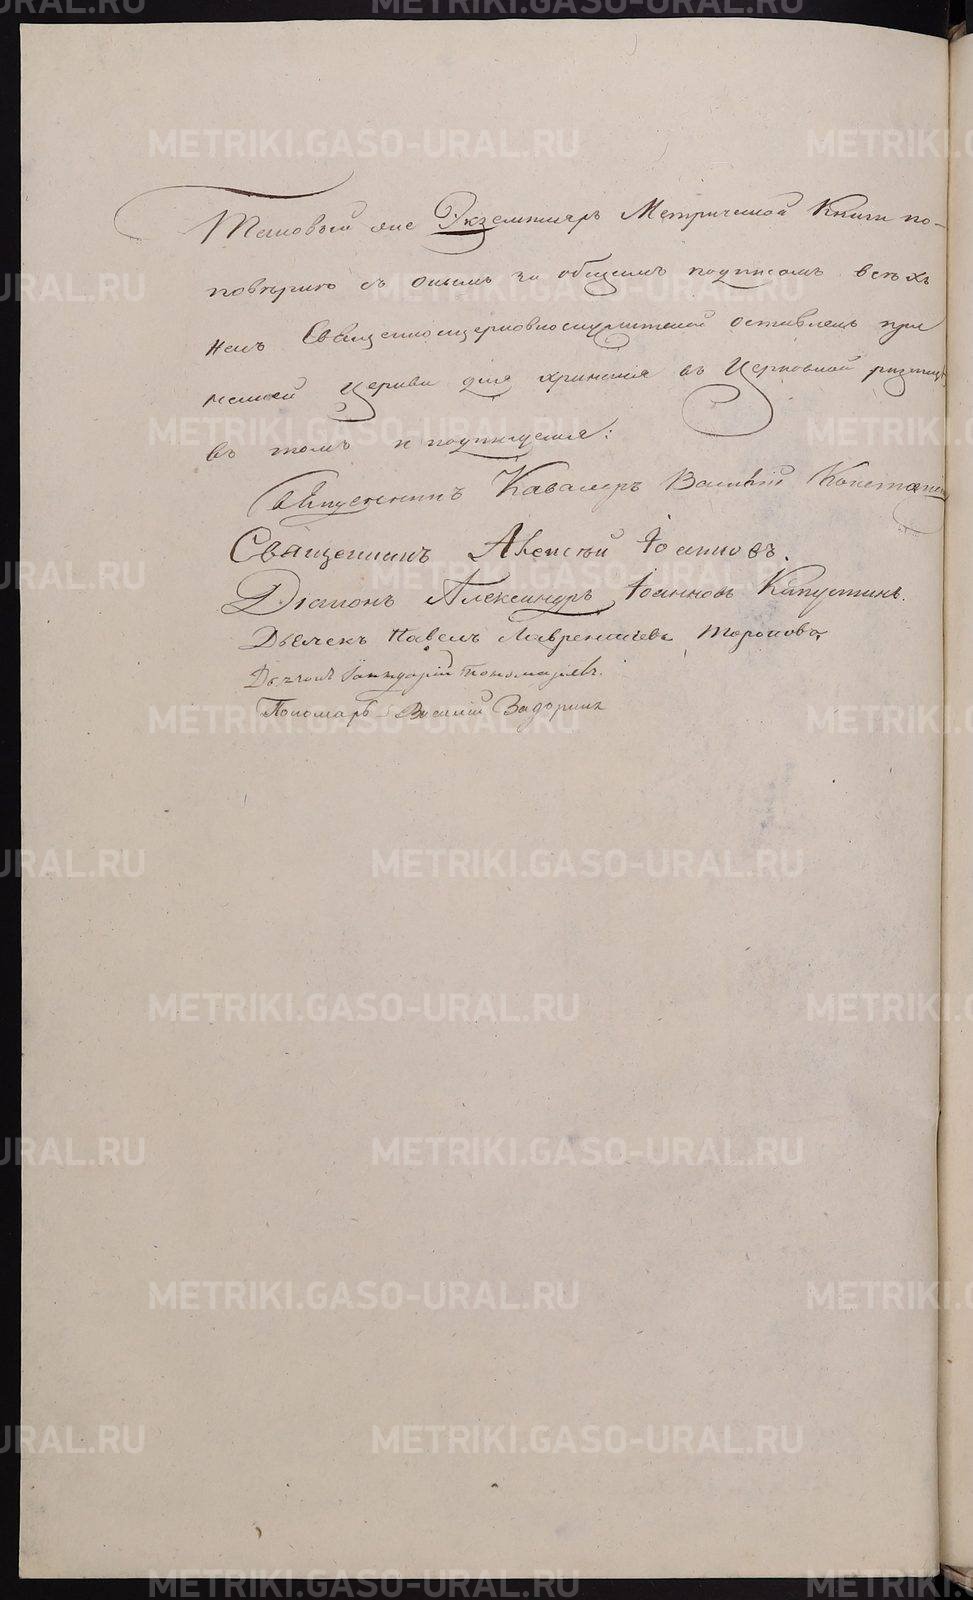 Таковый же Экземпляръ Метрической Книги по
повѣркѣ съ онымъ за общимъ подписомъ всѣхъ
насъ Священноцерковнослужителей оставленъ при
нашей церкви для храненія въ Церковной ризницѣ
въ томъ и подпишемся:
Священникъ Кавалеръ Василій
Священникъ Алексѣй Іоанновъ.
Діаконъ Александръ Іоанновъ Капустинъ.
Дьячекъ Павелъ Лаврентіевъ Топорковъ
Дьячокъ Пономаревъ.
Пономарь Василій Задоринъ
METRIKI.GASO-URAL.RU